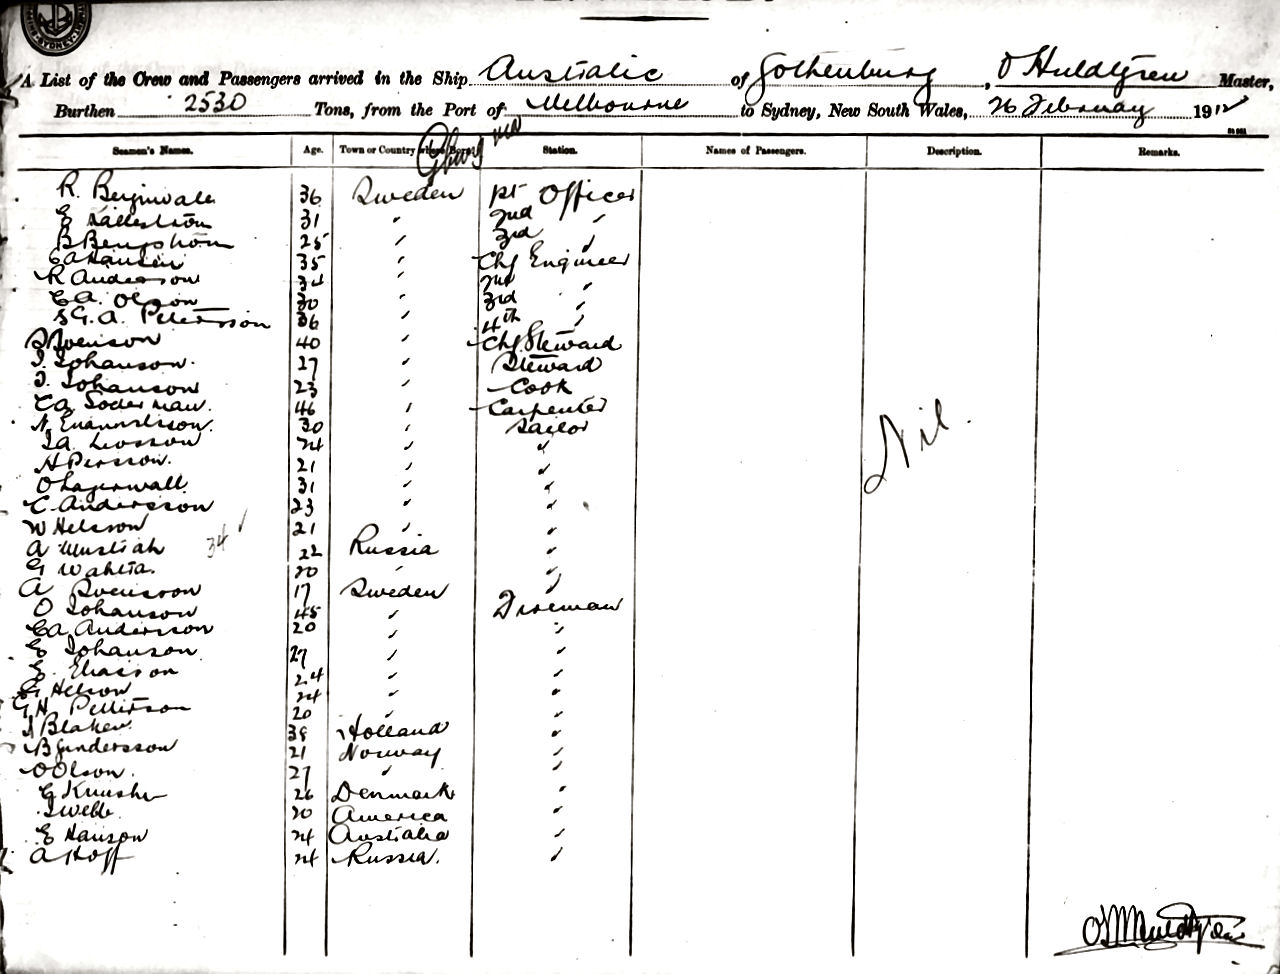 SYDNEY
A List of the Crew and Passengers arrived in the Ship Australic of Gothenburg, O Huldtgren Master,
Burthen 2530 Tons, from the Port of Melbourne to Sydney, New South Wales, 26 February 1912
Seamen's Names. Age. Town or Country where Born. Station. Names of Passengers. Description. Remarks.
R. 36 Sweden 1st Officer
E 31 " 2nd "
B Bengstrom 25 " 3rd "
CA Hansen 35 " Chf Engineer
R Anderson 34 " 2nd "
CA. Olson 30 " 3rd "
G. A. Pettersson 36 " 4th "
Svenson 40 " Chf. Steward
I. Johanson. 27 " Steward
J. Johanson 23 " Cook
CA Soderman. 46 " Carpenter
N. 30 " Sailor
24 " "
A Persson. 21 " "
O Lagerwall 31 " "
C. Andersson 23 " "
W Nelsson 21 " "
A 34 22 Russia "
G Wahlta. 20 " "
A Svensson 17 Sweden "
O Johanson 45 " Fireman
CA Andersson 20 " "
E Johanson 27 " "
E. Eliasson 24 " "
G. Nelson 24 " "
G.H. Petterson 20 " "
Blaken. 38 Holland "
B Gundersson 21 Norway "
O Olson. 27 " "
G 26 Denmark "
J Webb 20 America "
E Hanson 24 Australia "
A Hoff 24 Russia. "
Nil.